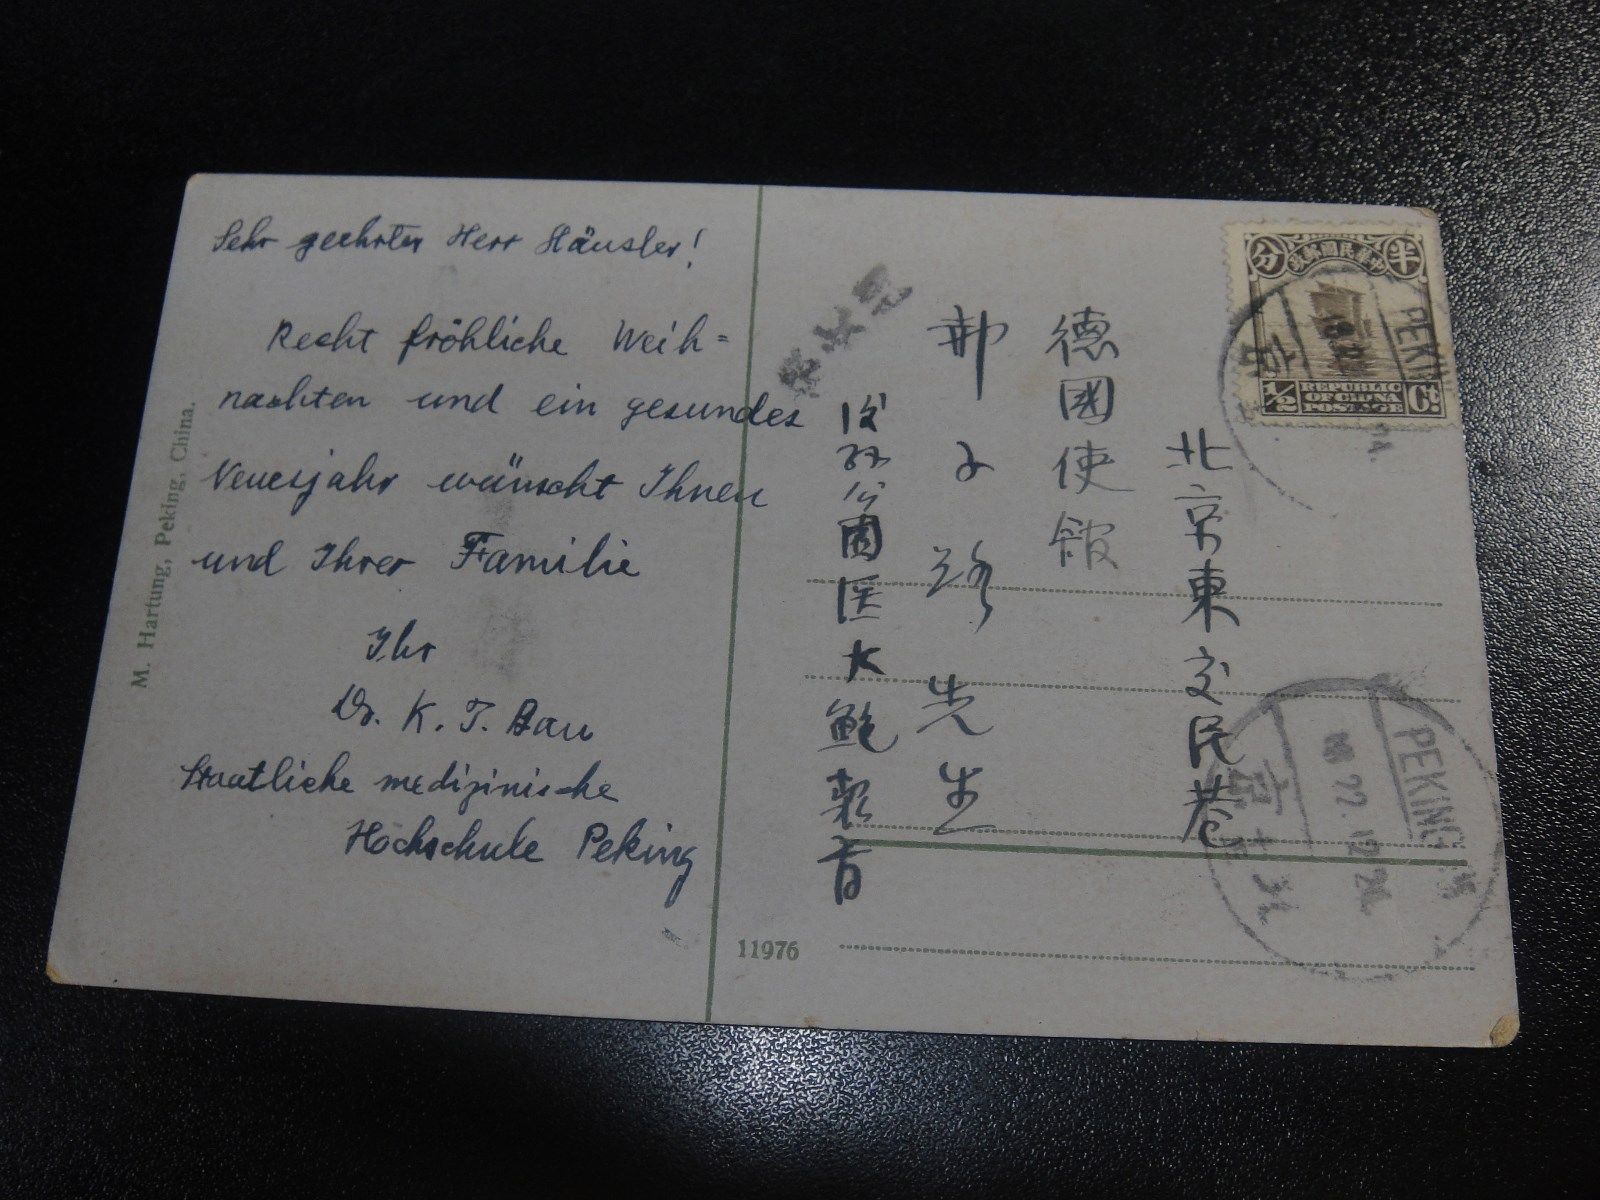 Sehr geehrter Herr Häusler!
Recht fröhliche Weih=
nachten und ein gesundes
Neuesjahr wünscht Ihnen
und Ihrer Familie
Ihr
Dr. K. T. Bau
Staatliche medizinische
Hochschule Peking
M. Hartung, Peking, China.
11976
北京東交民巷
德國使館
先生
医大鮑
分 中華民國郵政 半
1/2 REPUBLIC OF CHINA POSTAGE Ct
PEKING
PEKING
京